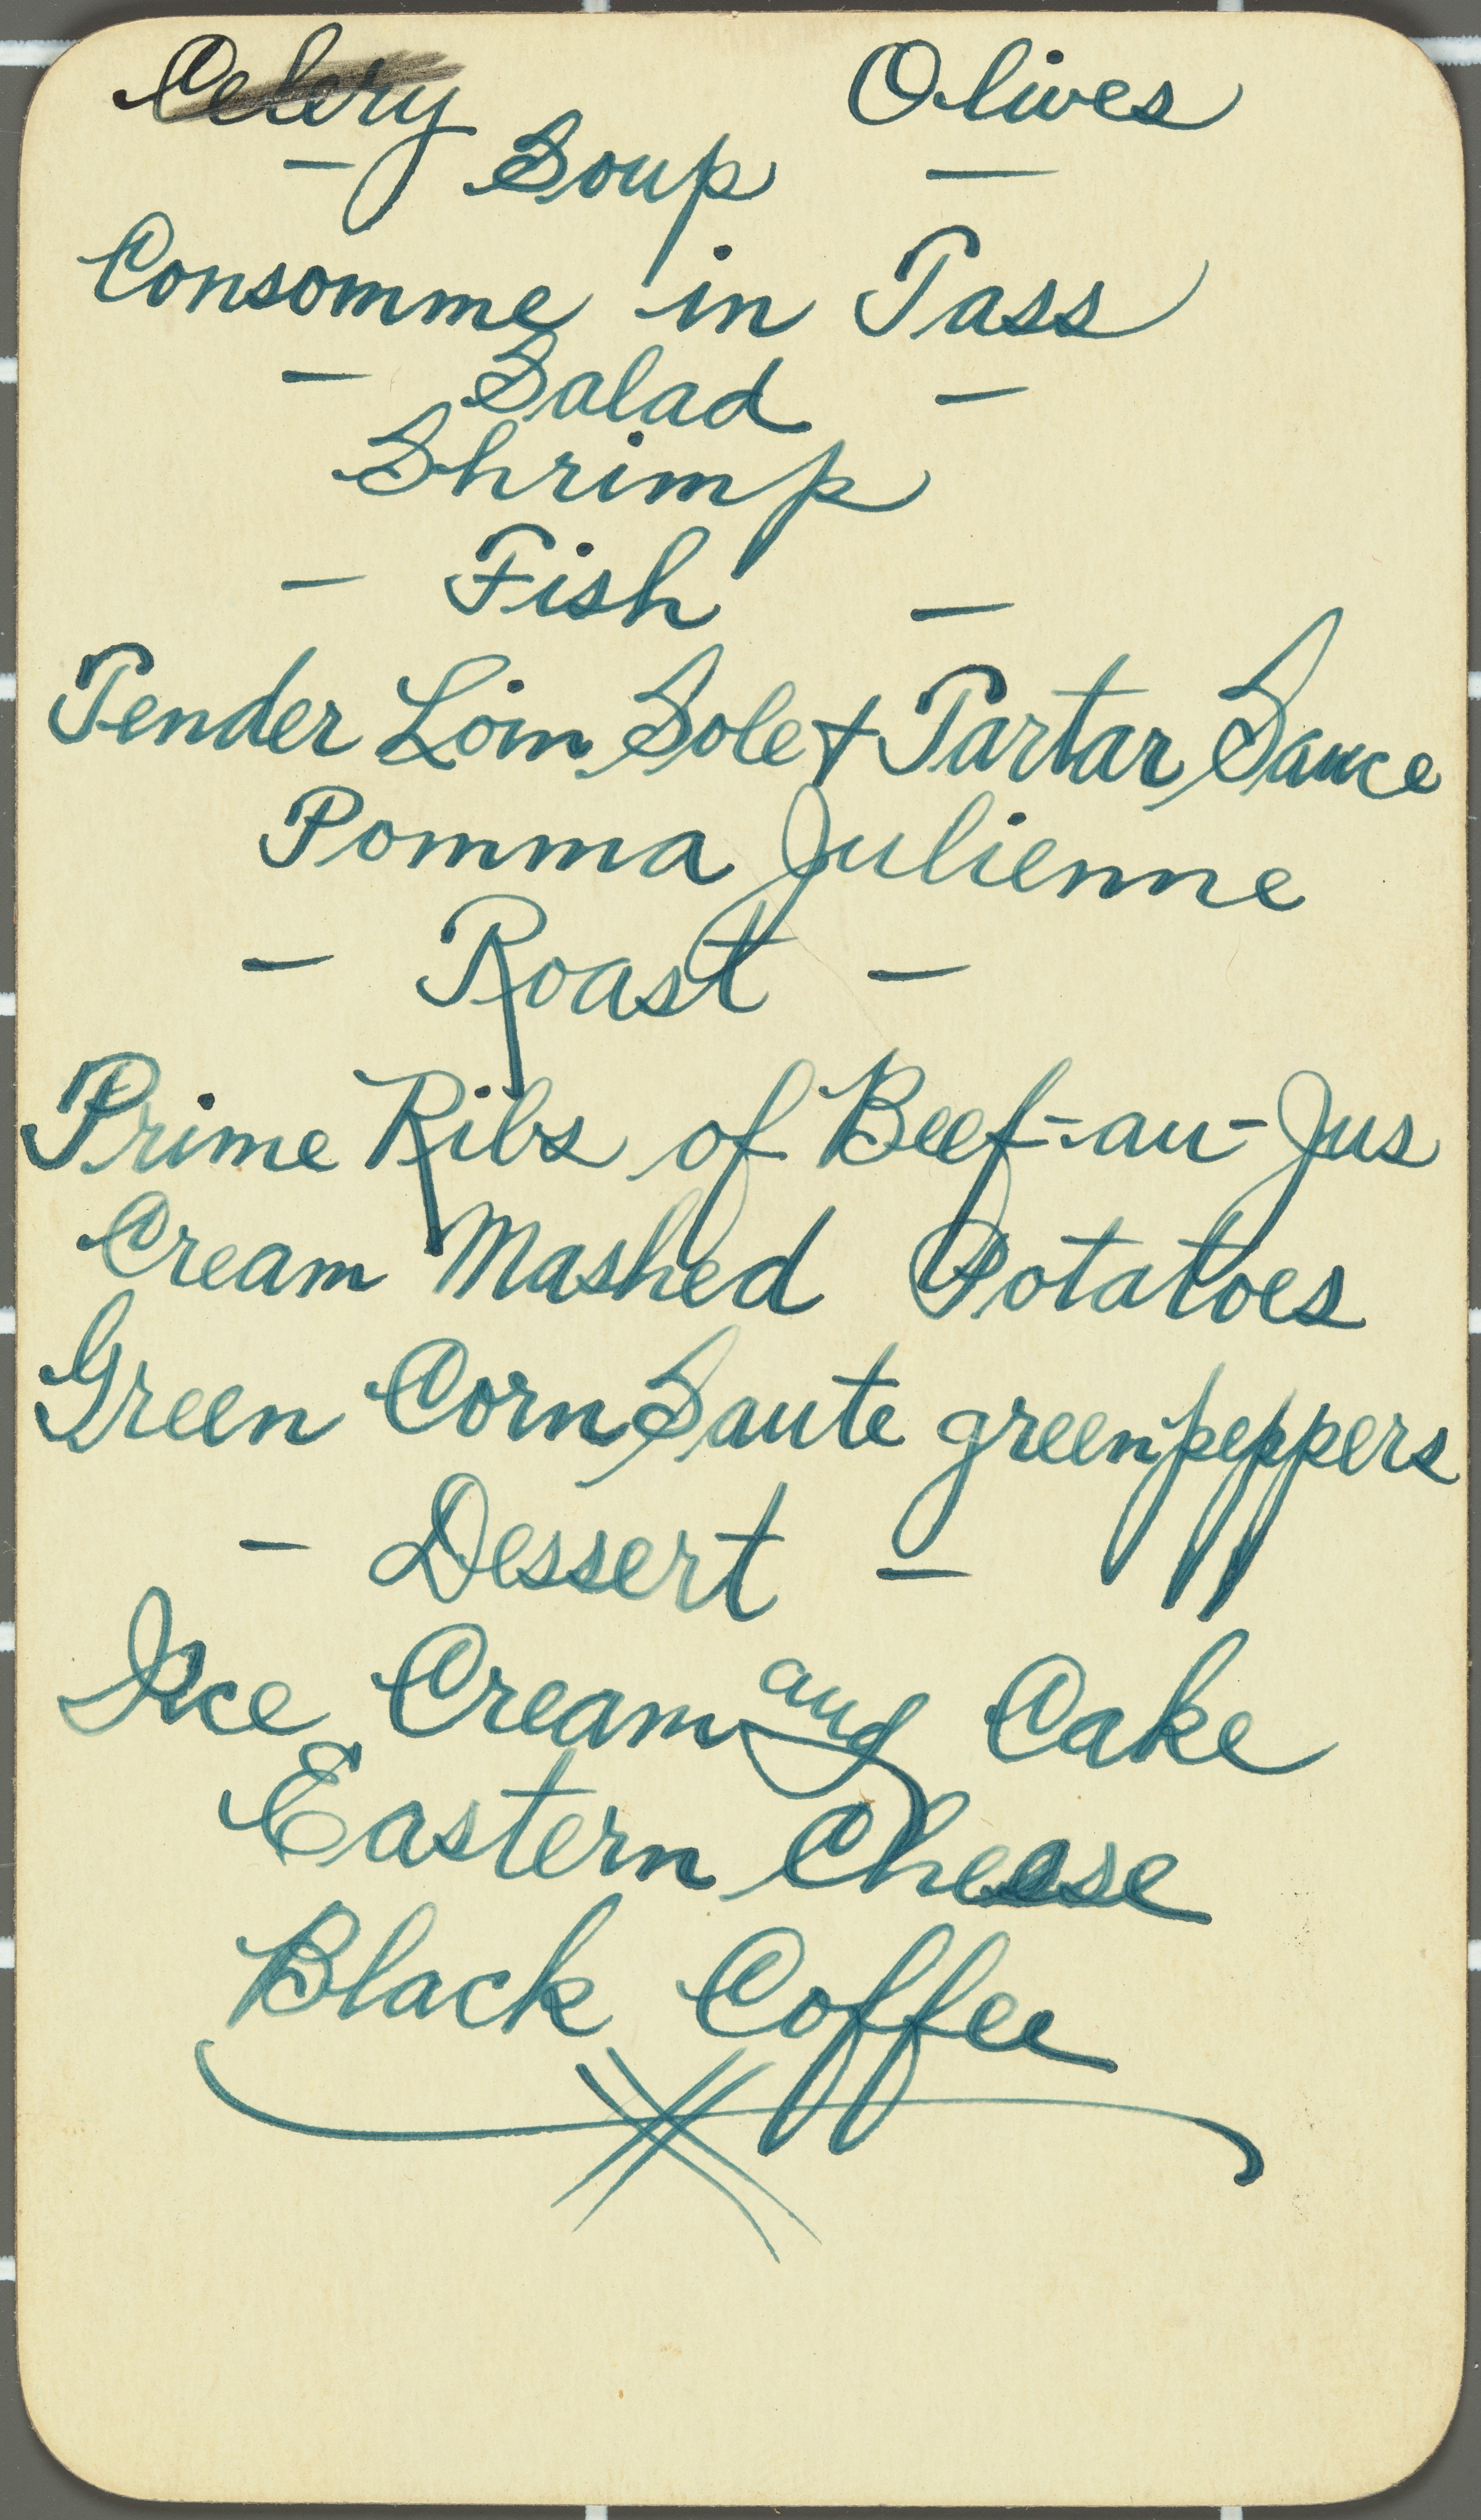 Celery Olives
- Soup -
Consomme in Tass
- Salad -
Shrimp
- Fish -
Tender Loin Sole + Tartar Sauce
Pomma Julienne
- Roast -
Prime Ribs of Beef-au-Jus
Cream Mashed Potatoes
Green Corn Saute green peppers
- Dessert -
Ice Cream and Cake
Eastern Cheese
Black Coffee